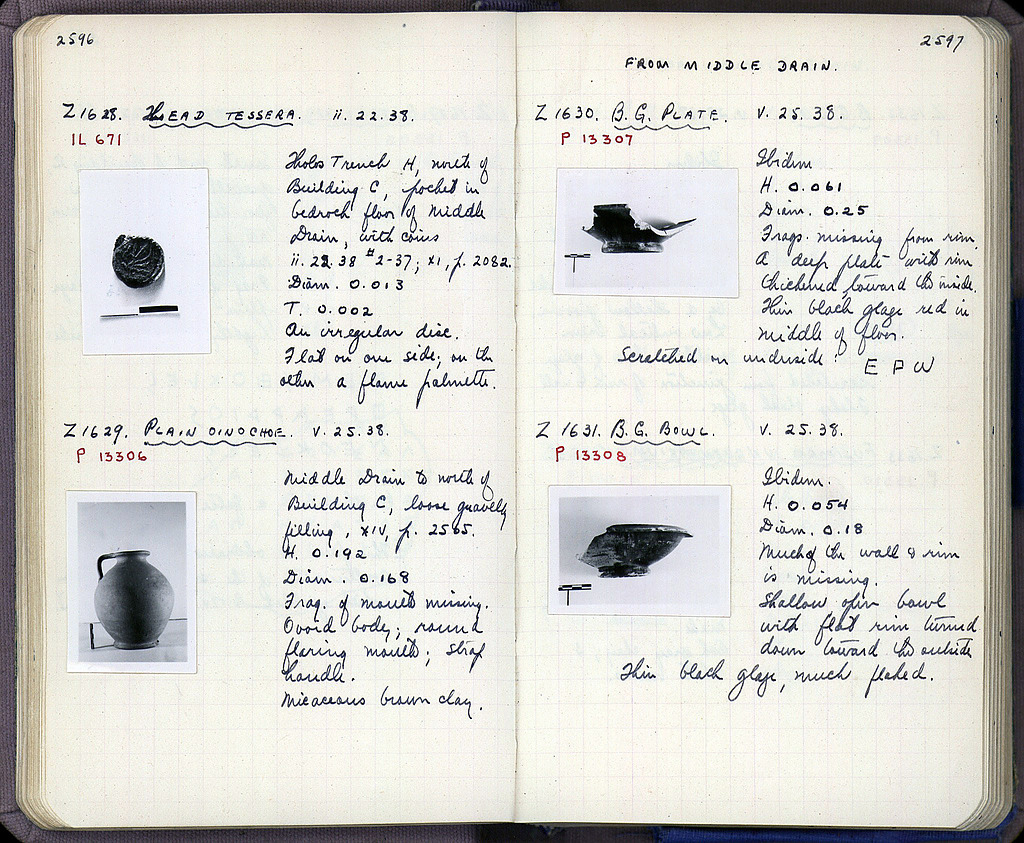 2596
Z 1628. LEAD TESSERA. ii. 22. 38.
IL 671
Tholos Trench H, north of
Building C, pocket in
bedrock floor of Middle
Drain, with coins
ii. 22 38 #2-37; XI, p. 2082.
Diam. 0.013
T. 0.002
An irregular disc.
Flat on one side; on the
other a flame palmette.
Z 1629. PLAIN OINOCHOE. V. 25. 38.
P 13306
Middle Drain to north of
Building C, loose gravelly
filling, XIV, p. 2565.
H. 0.192
Diam. 0.168
Frag. of mouth missing.
Ovoid body; round
flaring mouth; strap
handle.
Micaceous brown clay.
2597
FROM MIDDLE DRAIN.
Z 1630. B.G. PLATE. V. 25. 38.
P 13307
Ibidem
H. 0.061
Diam. 0.25
Frags. missing from rim.
A deep plate with rim
thickened toward the inside.
Thin black glaze red in
middle of floor.
Scratched on underside: E P W
Z 1631. B.G. BOWL. V. 25. 38.
P 13308
Ibidem.
H. 0.054
Diam. 0.18
Much of the wall & rim
is missing.
Shallow open bowl
with flat rim turned
down toward the outside
Thin black glaze, much flaked.